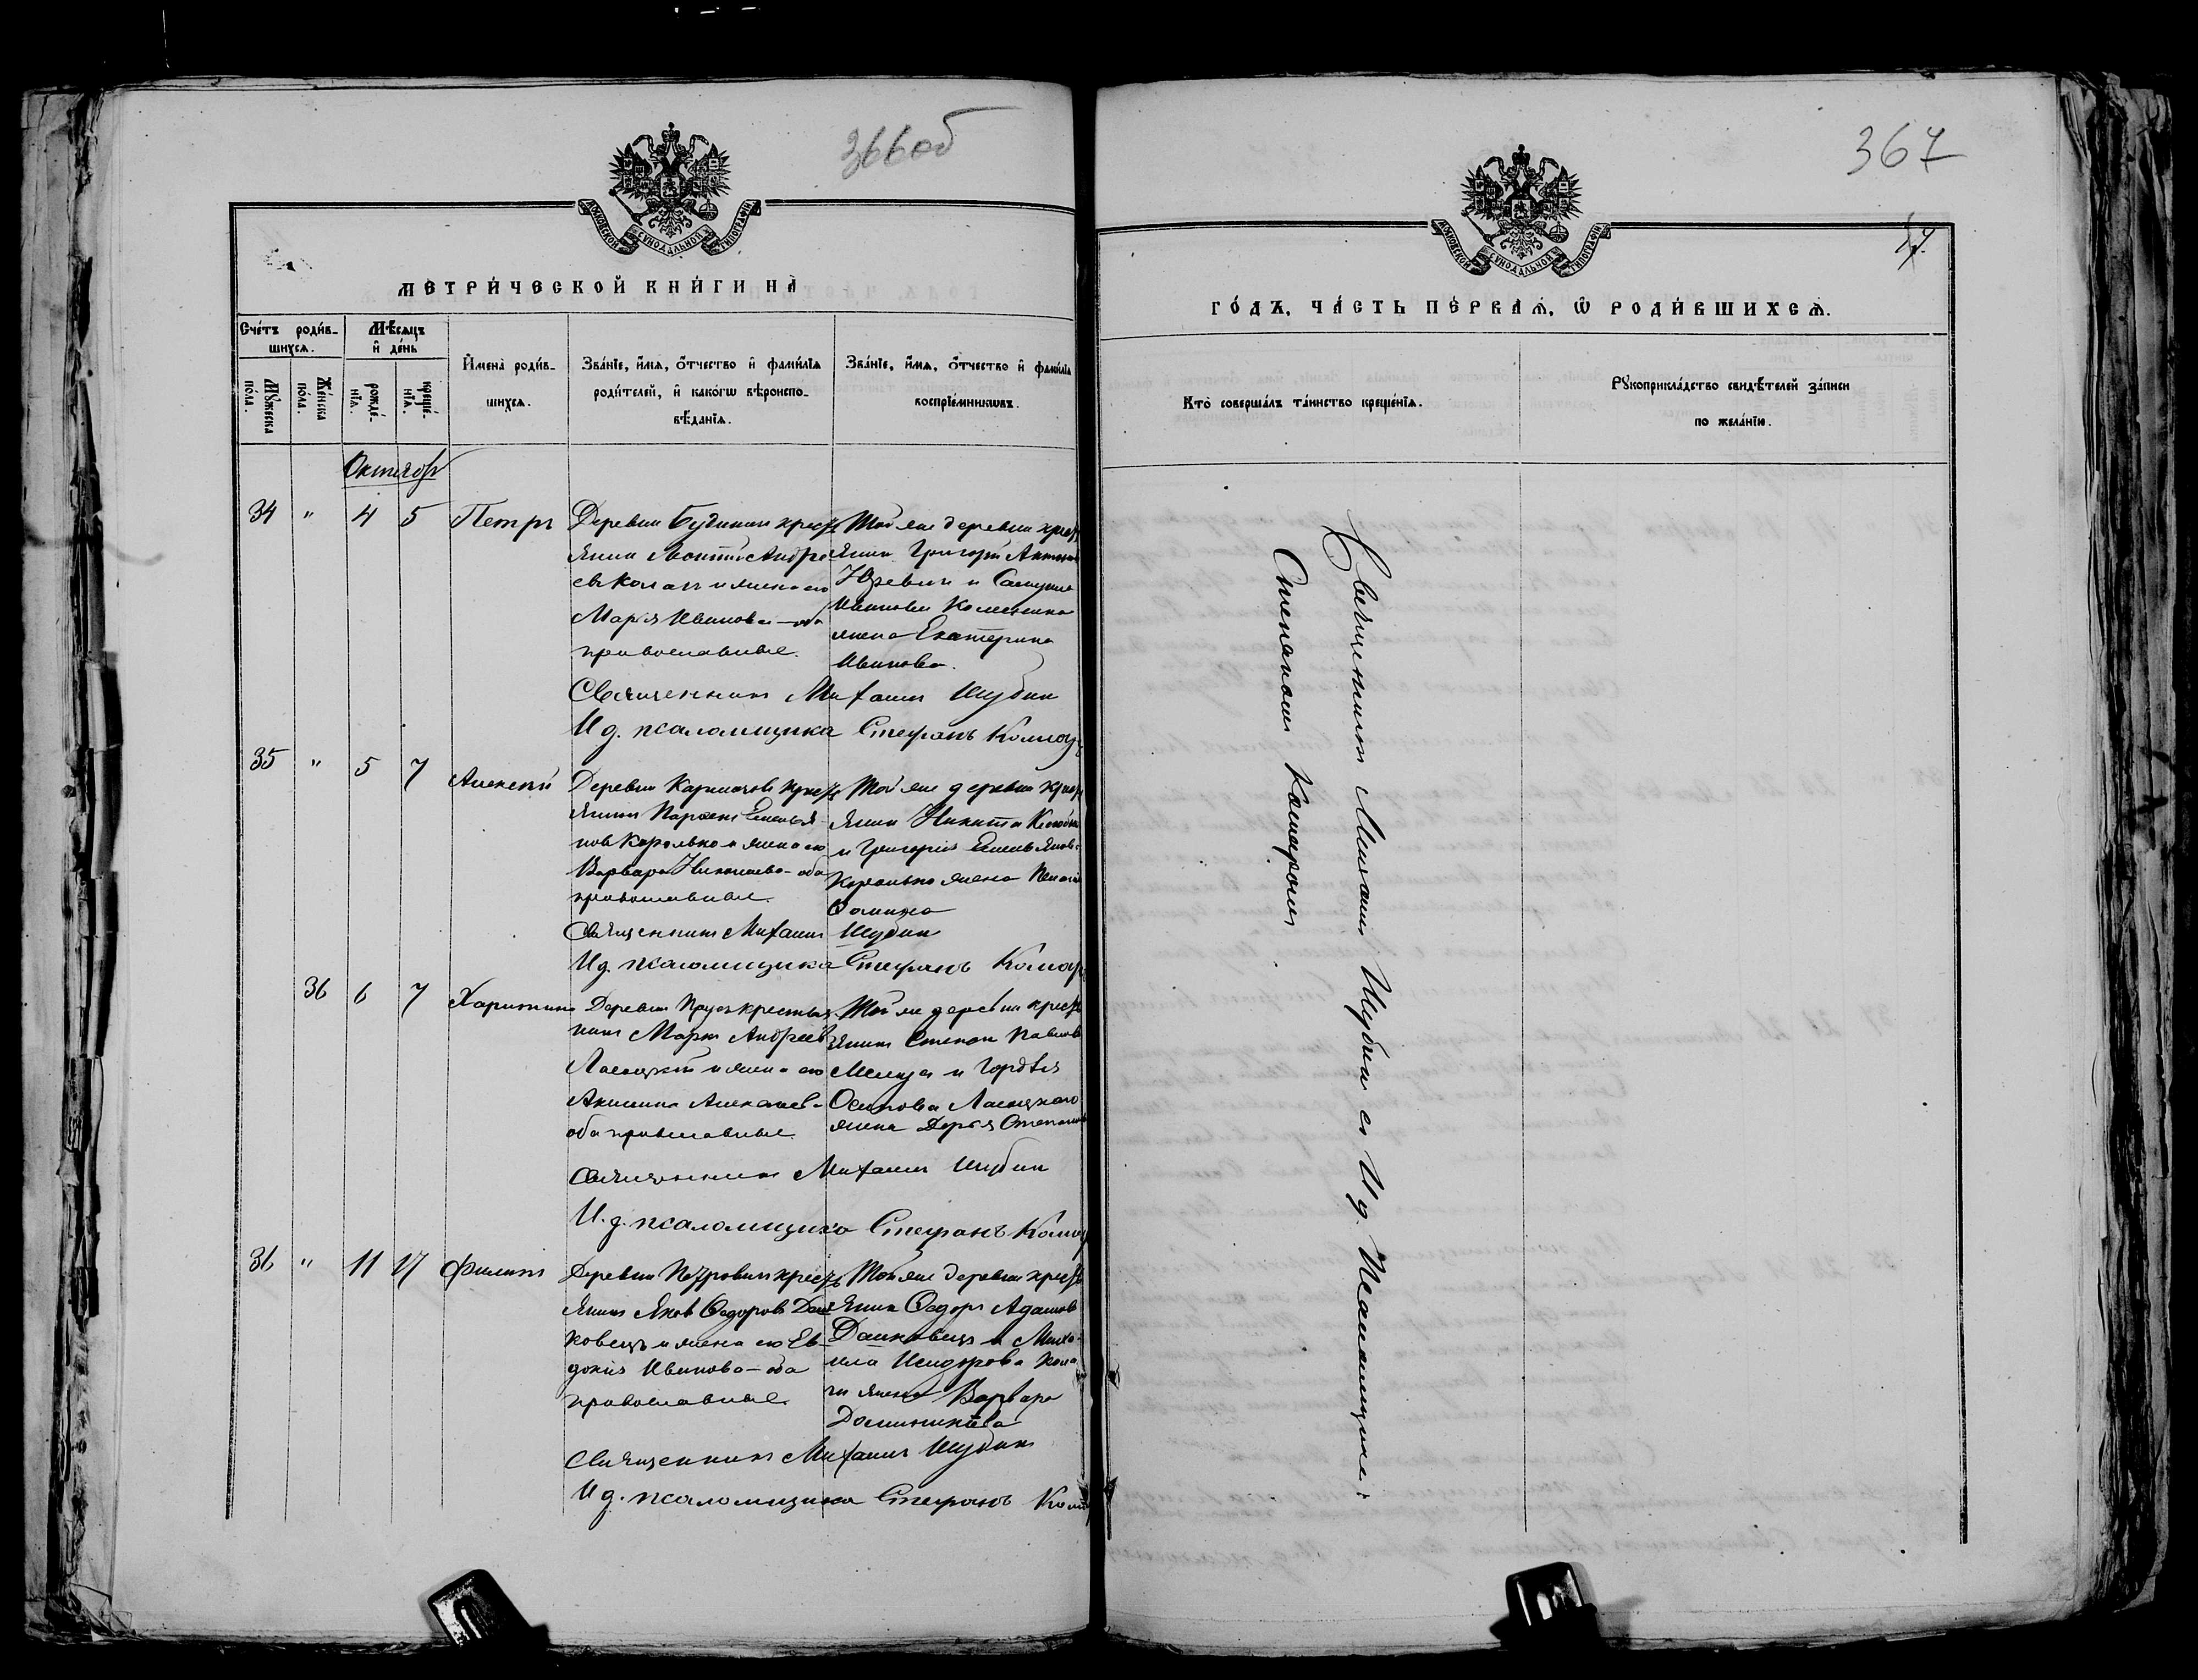 366об
МОСКОВСКОЙ СѴНОДАЛЬНОЙ ТИПОГРАФІИ
МЕТРИ́ЧЕСКОЙ КНИ́ГИ НА̀
Сче́тъ роди́в-
шихся.
Мѣ́сяцъ
и҆ де́нь
Мꙋ́жеска
по́ла.
Же́нска
по́ла.
рожде́-
нїѧ.
креще́-
нїѧ.
И҆мена̀ роди́в-
шихся.
Зва́нїе, и҆́мѧ, ѻ҆́тчество и҆ фами́лїѧ
роди́телей, и҆ како́гѡ вѣроиспо-
вѣ́данїѧ.
Зва́нїе, и҆́мѧ, ѻ҆́тчество и҆ фами́лїѧ
воспрїе́мникѡвъ.
Октябр
34 " 4 5 Петръ
Деревни крест
янин Андре
ев и жена его
Марія Иванова - оба
православные.
Той же деревни крест
янин Григорій
Юревич и
Иванова
жена Екатерина
Иванова.
Священникъ Михаилъ Шубин
И д. псаломщика Стефанъ
35 " 5 7 Алексей
Деревни крест
янинъ
нов Королько и жена его
Варвара Николаева - оба
православные.
Той же деревни крест
янин Никита
и Григорія Емельянов
Королько жена
Фомина
Священникъ Михаилъ Шубин
И д. псаломщика Стефанъ
36 6 7 Харитина
Деревни крестья
нинъ Маркъ Андреев
и жена его
Акилина Алексеев -
оба православные.
Той же деревни крест
янинъ Степан Павлов
и Гордѣя
Осипова
жена Дарья Степанова
Священникъ Михаилъ Шубин
И. д. псаломщика Стефанъ
36 " 11 17 Филипъ
Деревни Петровичи крест
янинъ Яков Федоров Даш
ковецъ и жена его Ев-
докія Иванова - оба
православные.
Той же деревни крест
янин Федоръ Адамов
Дашковецъ и Миха-
ила Исидорова
жена Варвара
Доминикова
Священникъ Михаилъ Шубинъ
И д. псаломщика Стефанъ
367
МОСКОВСКОЙ СѴНОДАЛЬНОЙ ТИПОГРАФІИ
ГО́ДЪ, ЧА́СТЬ ПЕ́РВАѦ, Ѡ҆ РОДИ́ВШИХСѦ.
Кто̀ соверша́лъ та́инство креще́нїѧ.
Рꙋкоприкла́дство свидѣ́телей за́писи
по жела́нїю.
Священникъ Михаилъ Шубин с И д. Псаломщика
Стефаномъ